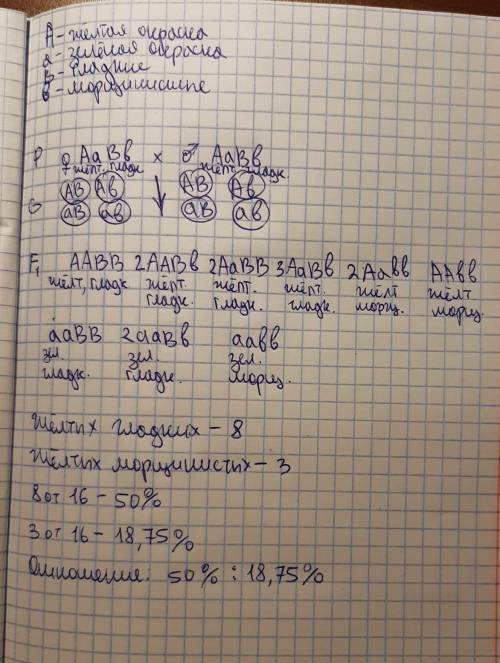 А - жёлтая окраска
а - зелёная окраска
В - гладкие
в - морщинистые
P ♀ АаВв × ♂ АаВв
жёлт. гладк. жёлт. гладк.
G АВ Ав АВ Ав
аВ ав аВ ав
F₁ ААВВ 2ААВв 2АаВВ 3АаВв 2Аавв ААвв
жёлт, гладк жёлт. жёлт. жёлт. жёлт жёлт
гладк. гладк. гладк. морщ. морщ.
ааВВ 2ааВв аавв
зел. зел. зел.
гладк. гладк. морщ.
Жёлтых гладких - 8
Жёлтых морщинистых - 3
8 от 16 - 50%
3 от 16 - 18,75%
Отношение: 50% : 18,75%